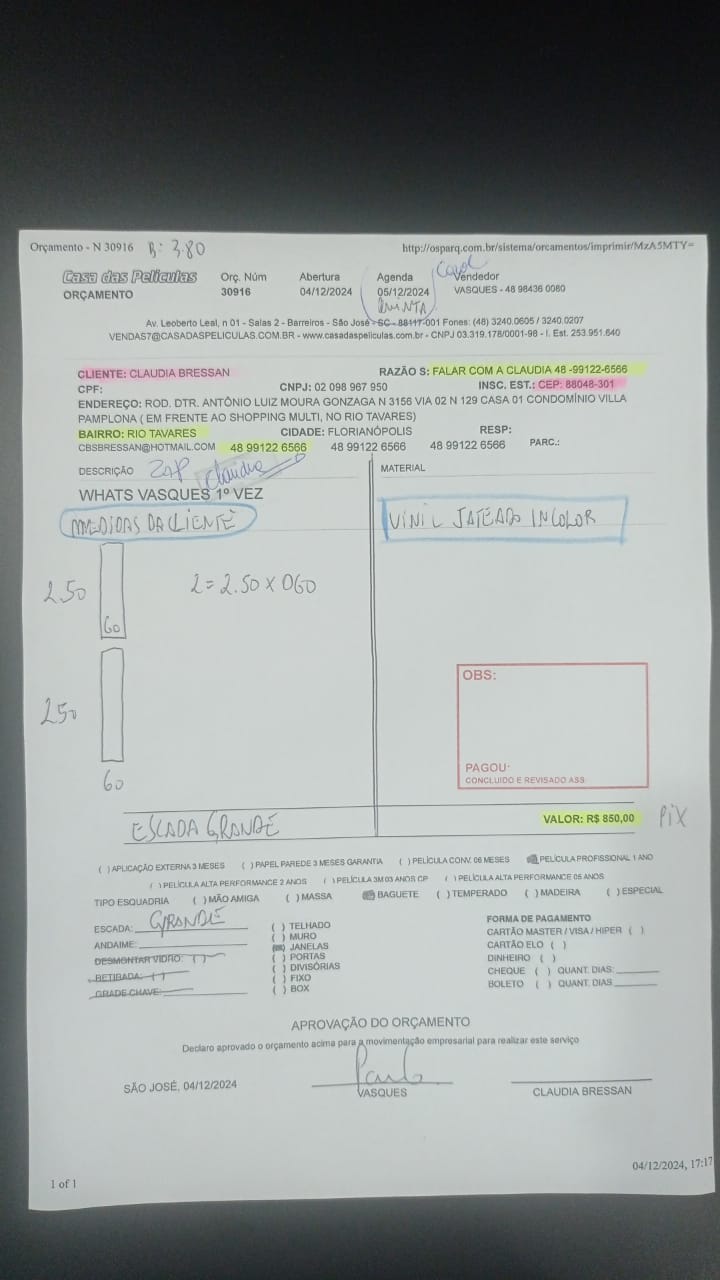 Orçamento - N 30916 B: 3.80 http://osparq.com.br/sistema/orcamentos/imprimir/MzA5MTY=
Casa das Películas Orç. Núm Abertura Agenda Carol Vendedor
ORÇAMENTO 30916 04/12/2024 05/12/2024 VASQUES - 48 98436 0080
QUINTA
Av. Leoberto Leal, n 01 - Salas 2 - Barreiros - São José - SC - 88117-001 Fones: (48) 3240.0605 / 3240.0207
VENDAS7@CASADASPELICULAS.COM.BR - www.casadaspeliculas.com.br - CNPJ 03.319.178/0001-98 - I. Est. 253.951.640
CLIENTE: CLAUDIA BRESSAN RAZÃO S: FALAR COM A CLAUDIA 48 -99122-6566
CPF: CNPJ: 02 098 967 950 INSC. EST.: CEP: 88048-301
ENDEREÇO: ROD. DTR. ANTÔNIO LUIZ MOURA GONZAGA N 3156 VIA 02 N 129 CASA 01 CONDOMÍNIO VILLA
PAMPLONA ( EM FRENTE AO SHOPPING MULTI, NO RIO TAVARES)
BAIRRO: RIO TAVARES CIDADE: FLORIANÓPOLIS RESP:
CBSBRESSAN@HOTMAIL.COM 48 99122 6566 48 99122 6566 48 99122 6566 PARC.:
DESCRIÇÃO ZAP Claudia MATERIAL
WHATS VASQUES 1º VEZ
MEDIDAS DA CLIENTE VINIL JATEADO INCOLOR
2.50 60 2 = 2.50 x 060
250
60
OBS:
PAGOU:
CONCLUIDO E REVISADO ASS:
ESCADA GRANDE VALOR: R$ 850,00 PIX
( ) APLICAÇÃO EXTERNA 3 MESES ( ) PAPEL PAREDE 3 MESES GARANTIA ( ) PELÍCULA CONV. 06 MESES PELÍCULA PROFISSIONAL 1 ANO
( ) PELÍCULA ALTA PERFORMANCE 2 ANOS ( ) PELÍCULA 3M 03 ANOS CP ( ) PELÍCULA ALTA PERFORMANCE 05 ANOS
TIPO ESQUADRIA ( ) MÃO AMIGA ( ) MASSA BAGUETE ( ) TEMPERADO ( ) MADEIRA ( ) ESPECIAL
ESCADA: GRANDE
ANDAIME:
DESMONTAR VIDRO: ( )
RETIRADA: ( )
GRADE CHAVE:
( ) TELHADO
( ) MURO
JANELAS
( ) PORTAS
( ) DIVISÓRIAS
( ) FIXO
( ) BOX
FORMA DE PAGAMENTO
CARTÃO MASTER / VISA / HIPER ( )
CARTÃO ELO ( )
DINHEIRO ( )
CHEQUE ( ) QUANT. DIAS:
BOLETO ( ) QUANT. DIAS
APROVAÇÃO DO ORÇAMENTO
Declaro aprovado o orçamento acima para a movimentação empresarial para realizar este serviço
SÃO JOSÉ, 04/12/2024 VASQUES CLAUDIA BRESSAN
04/12/2024, 17:17
1 of 1